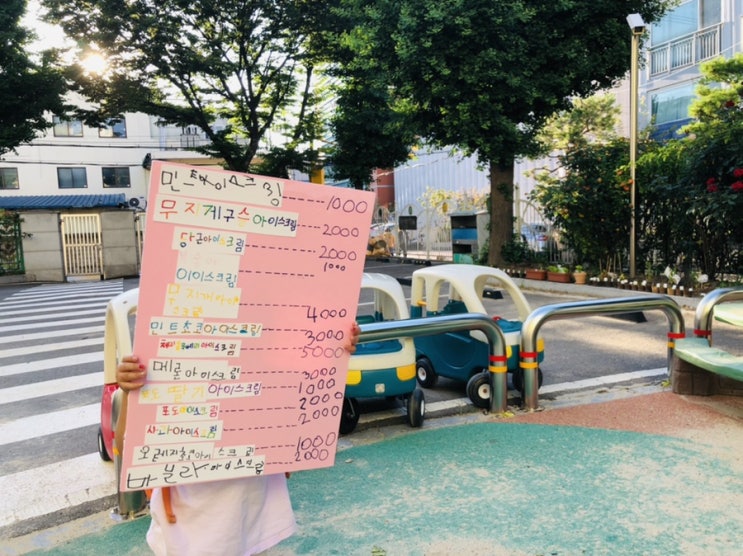 민트아이스크림 1000
무지게구슬아이스크림 2000
당근아이스크림 2000
1000
아이스크림
무지개아이스크림 4000
민트초코아이스크림 3000
아이스크림 5000
메론아이스크림 3000
딸기 아이스크림 1000
포도아이스크림 2000
사과아이스크림 2000
오렌지 아이스크림 1000
바닐라아이스크림 2000